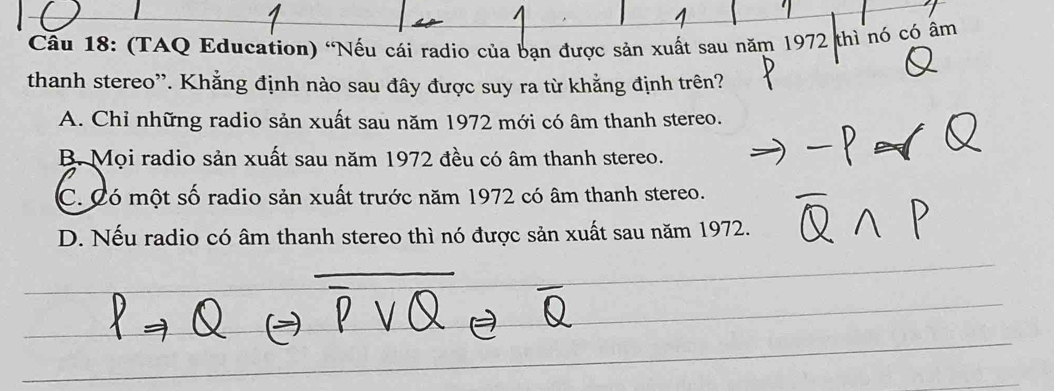 Câu 18: (TAQ Education) “Nếu cái radio của bạn được sản xuất sau năm 1972 thì nó có âm
thanh stereo”. Khẳng định nào sau đây được suy ra từ khẳng định trên?
P Q
A. Chỉ những radio sản xuất sau năm 1972 mới có âm thanh stereo.
B. Mọi radio sản xuất sau năm 1972 đều có âm thanh stereo.
⇒ -P Q
C. Có một số radio sản xuất trước năm 1972 có âm thanh stereo.
D. Nếu radio có âm thanh stereo thì nó được sản xuất sau năm 1972.
Q̅ ∧ P
P ⇒ Q ⇔ \overline{P̅ ∨ Q} ⇔ Q̅